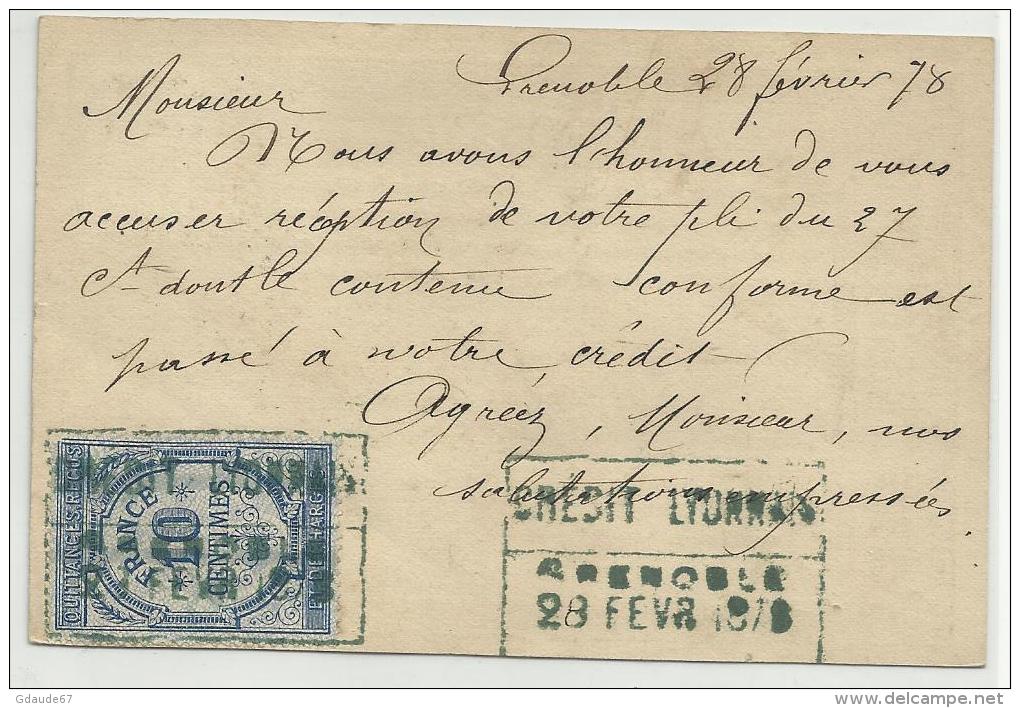 Grenoble 28 février 78
Monsieur
Nous avons l'honneur de vous
accuser réception de votre pli du 27
Ct dont le contenu conforme est
passé à votre crédit
Agréez, Monsieur, nos
salutations empressées
QUITTANCES, REÇUS
ET DÉCHARGES
FRANCE
10
CENTIMES
CRÉDIT LYONNAIS
GRENOBLE
28 FEVR 1878
Gdaude67
www.delcampe.net